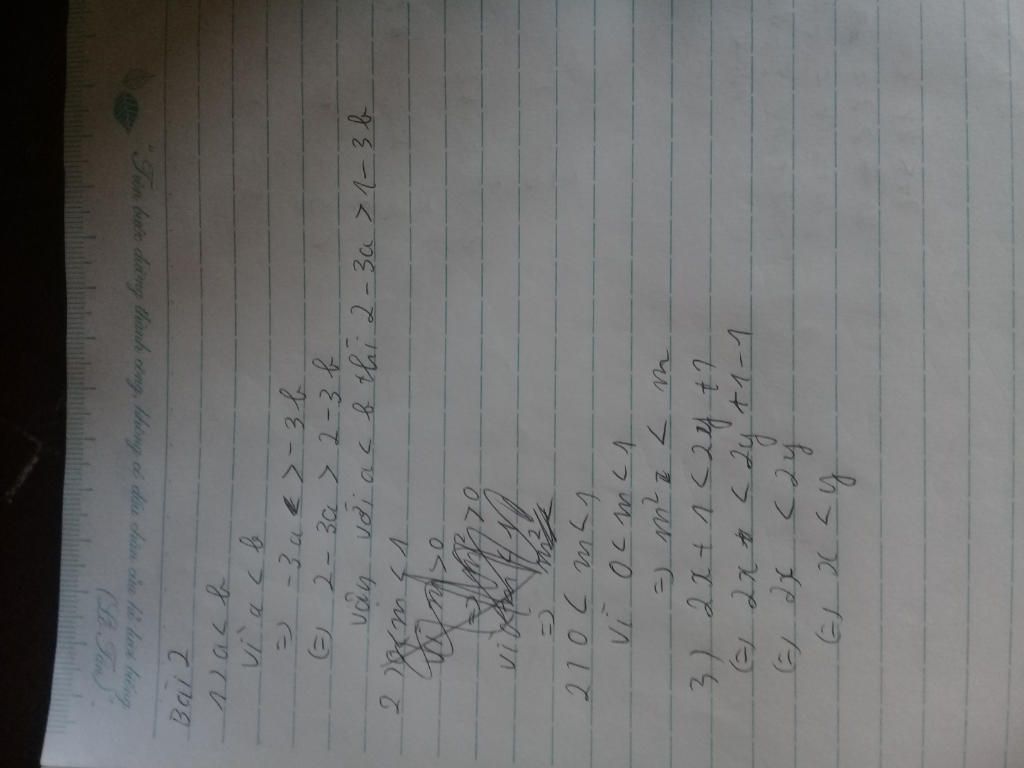 "Trên bước đường thành công, không có dấu chân của kẻ lười biếng"
(Lỗ Tấn)
Bài 2
1) a < b
Vì a < b
=) -3a > -3b
(=) 2 - 3a > 2 - 3b
vậy với a < b thì 2 - 3a > 1 - 3b
2)
m < 1
=)
2) 0 < m < 1
Vì 0 < m < 1
=) m² < m
3) 2x + 1 < 2y + 1
(=) 2x < 2y + 1 - 1
(=) 2x < 2y
(=) x < y